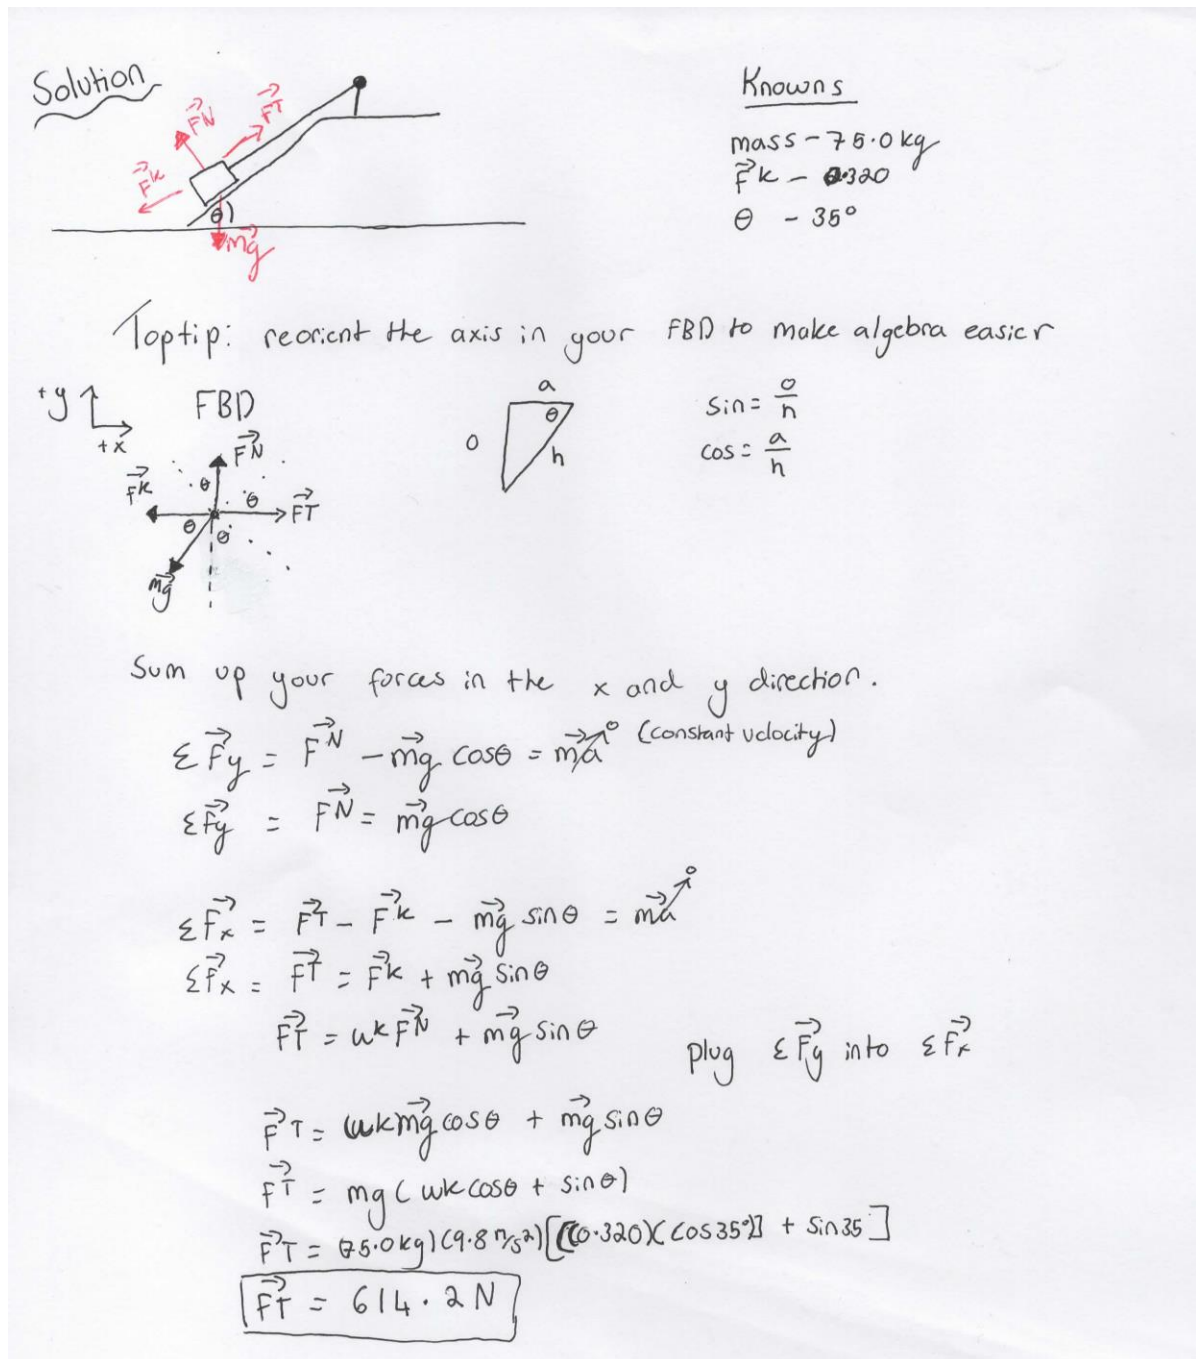 Solution
F⃗N
F⃗T
F⃗k
θ
mg⃗
Knowns
mass - 75.0 kg
F⃗k - 0.320
θ - 35°
Toptip: reorient the axis in your FBD to make algebra easier
+y
+x
FBD
F⃗N
F⃗k
θ
θ
F⃗T
θ
θ
mg⃗
a
θ
o
h
sin = o/h
cos = a/h
Sum up your forces in the x and y direction.
ΣF⃗y = F⃗N - mg⃗ cosθ = ma⃗ 0 (constant velocity)
ΣF⃗y = F⃗N = mg⃗ cosθ
ΣF⃗x = F⃗T - F⃗k - mg⃗ sinθ = ma⃗ 0
ΣF⃗x = F⃗T = F⃗k + mg⃗ sinθ
F⃗T = ukF⃗N + mg⃗ sinθ
plug ΣF⃗y into ΣF⃗x
F⃗T = ukmg⃗ cosθ + mg⃗ sinθ
F⃗T = mg( ukcosθ + sinθ)
F⃗T = (75.0kg)(9.8 m/s²)[((0.320)(cos35°)] + sin35]
F⃗T = 614.2N